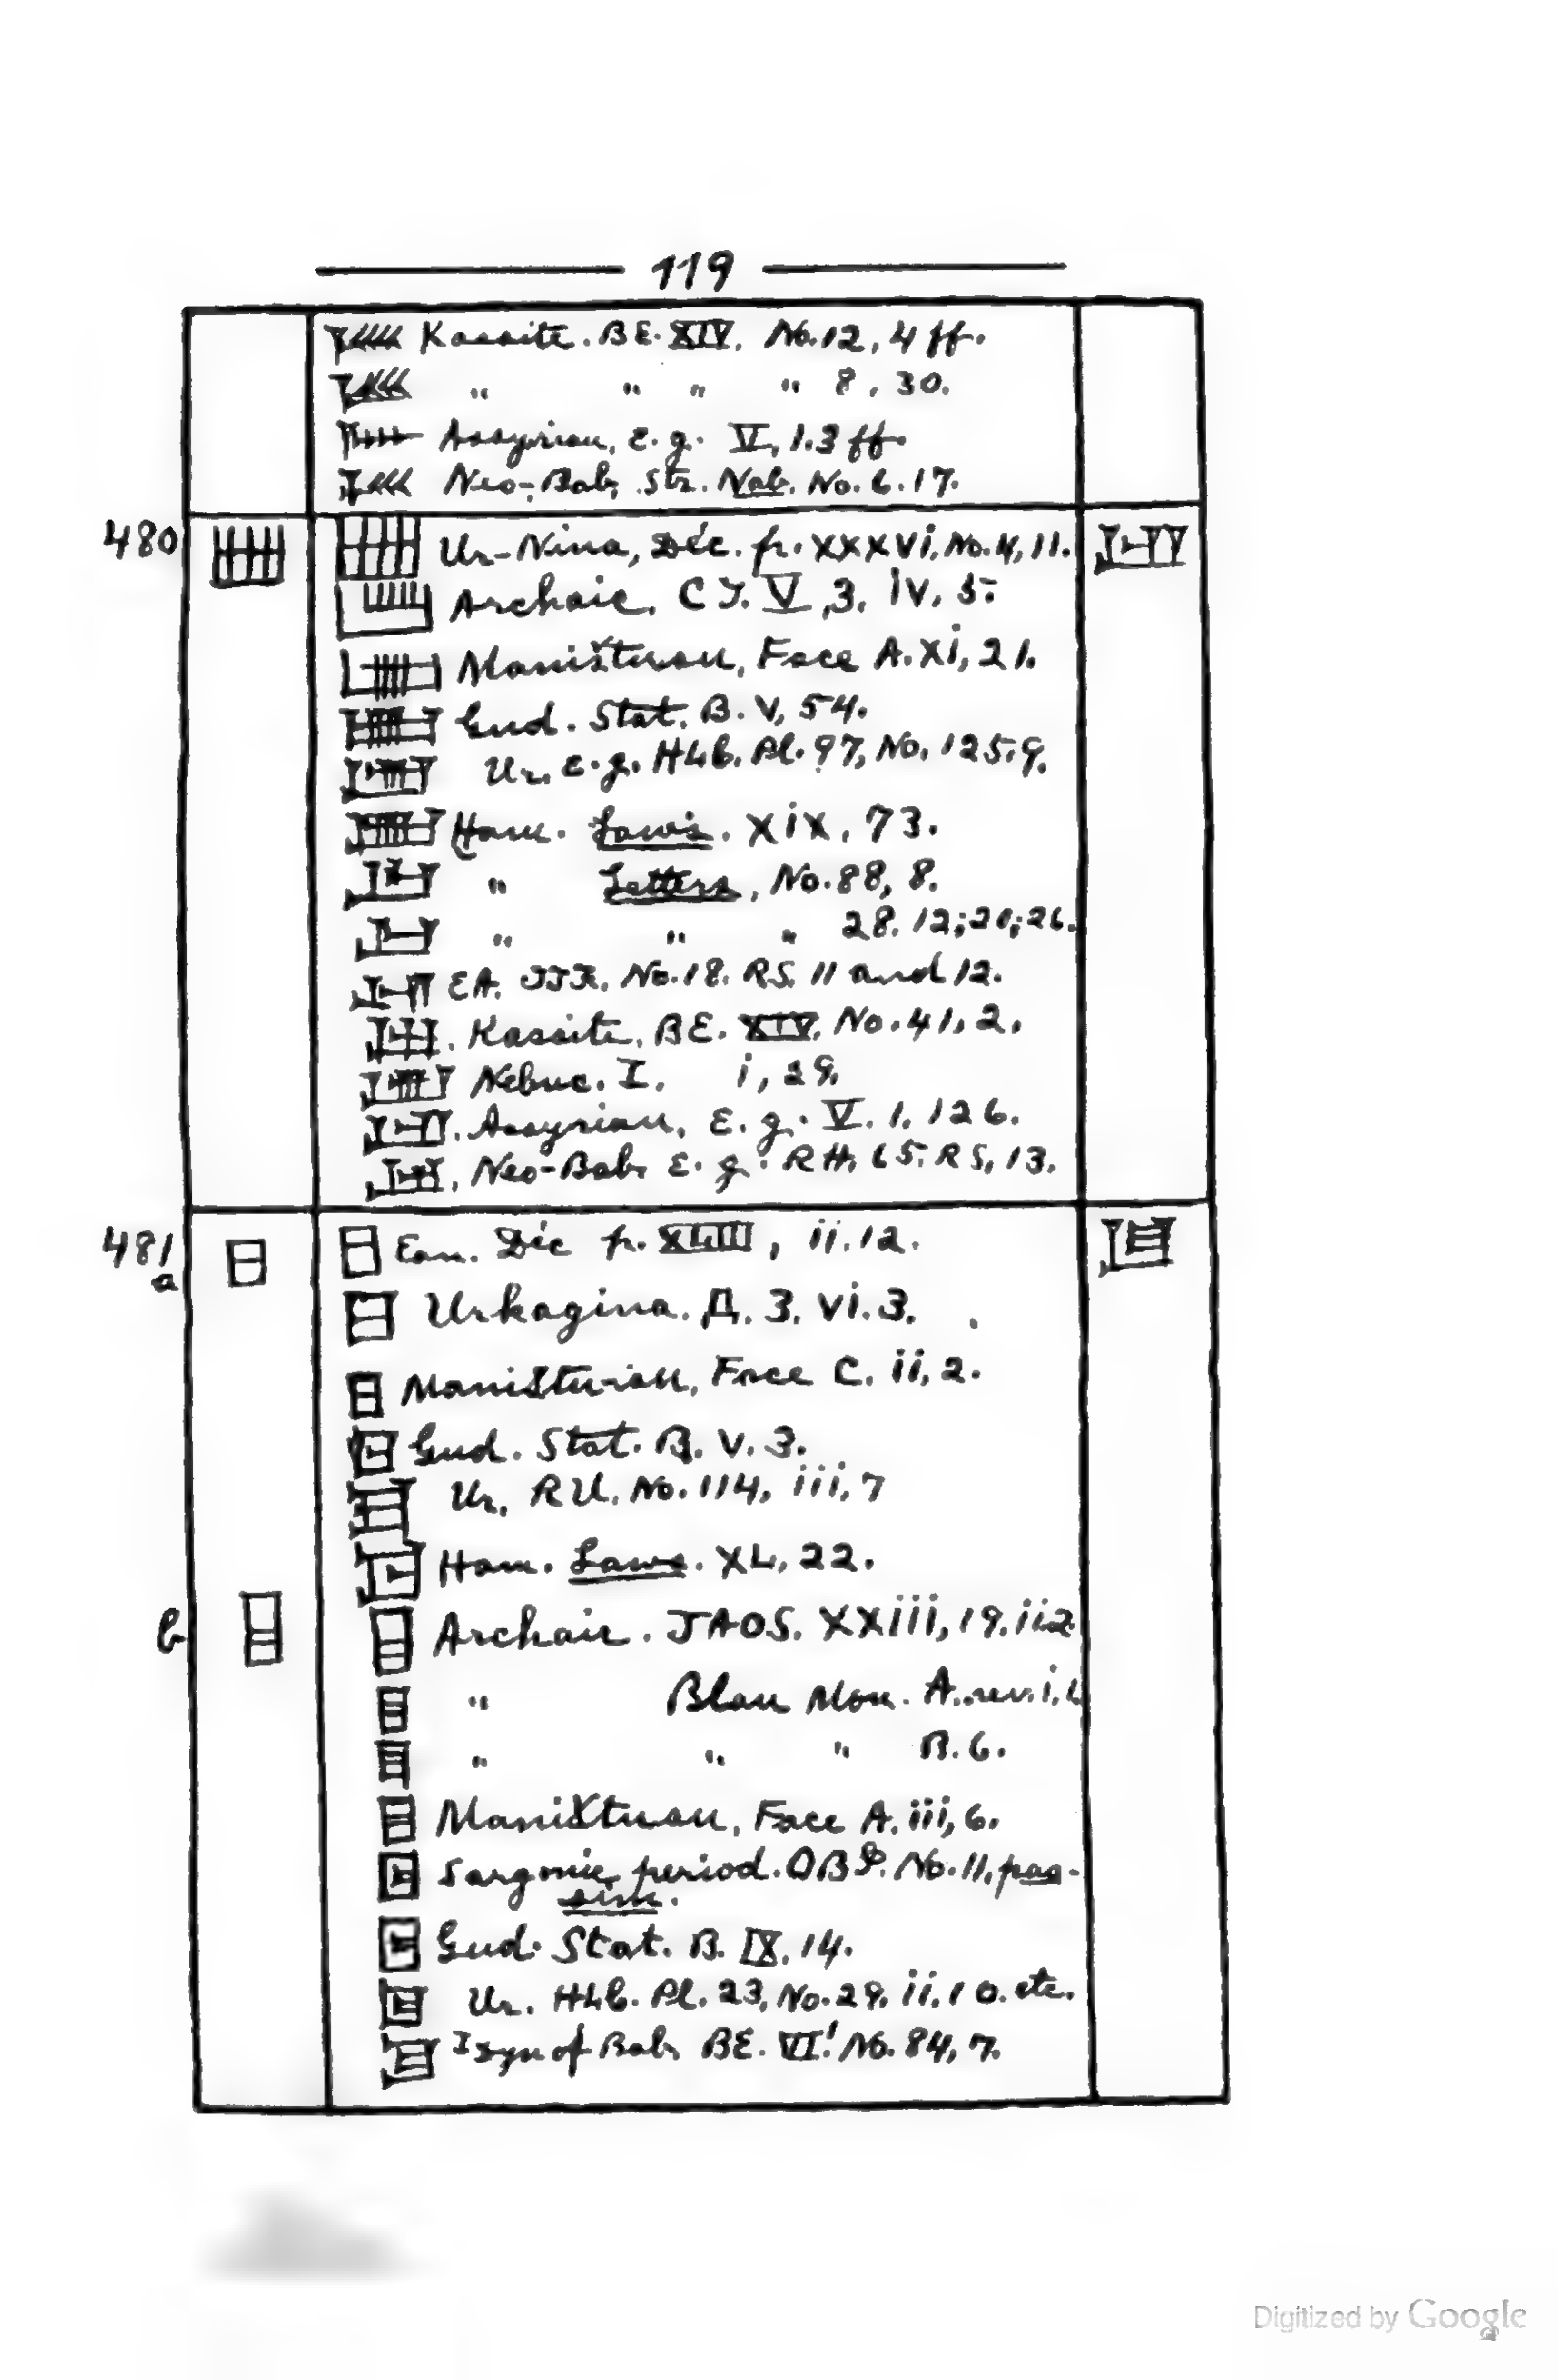 119
Kassite. BE. XIV. No. 12, 4 ff.
" " " " 8, 30.
Assyrian, E. g. V, 1.3 ff.
Neo-Bab. Str. Nab. No. 6. 17.
480 Ur-Nina, Déc. fr. XXXVI. No. 4, 11.
Archaic. CT. V, 3. IV, 5.
Maništusu, Face A. XI, 21.
Gud. Stat. B. V, 54.
Ur. E. g. HLB. Pl. 97, No. 125. 9.
Ham. Laws. XIX, 73.
" Letters, No. 88, 8.
" " " 28. 12; 21; 26.
EA. No. 18. RS. 11 and 12.
Kassite, BE. XIV. No. 41, 2.
Nebuc. I. i, 29.
Assyrian, E. g. V. 1, 126.
Neo-Bab. E. g. RH. 65. RS, 13.
481
a Ean. Déc fr. XLIII, ii. 12.
Urkagina. Д. 3. vi. 3.
Maništu-isu, Face C. ii, 2.
Gud. Stat. B. V. 3.
Ur, RU. No. 114, iii, 7
Ham. Laws. XL, 22.
b Archaic. JAOS. XXIII, 19. ii 2.
" Blau Mon. A. rev. i,
" " " B. 6.
Maništusu, Face A. iii, 6.
Sargonic period. OBI. No. 11, pas-
sim.
Gud. Stat. B. IX, 14.
Ur. HLB. Pl. 23, No. 29. ii. 10. etc.
I Dyn of Bab. BE. VI¹ No. 84, 7.
Digitized by Google